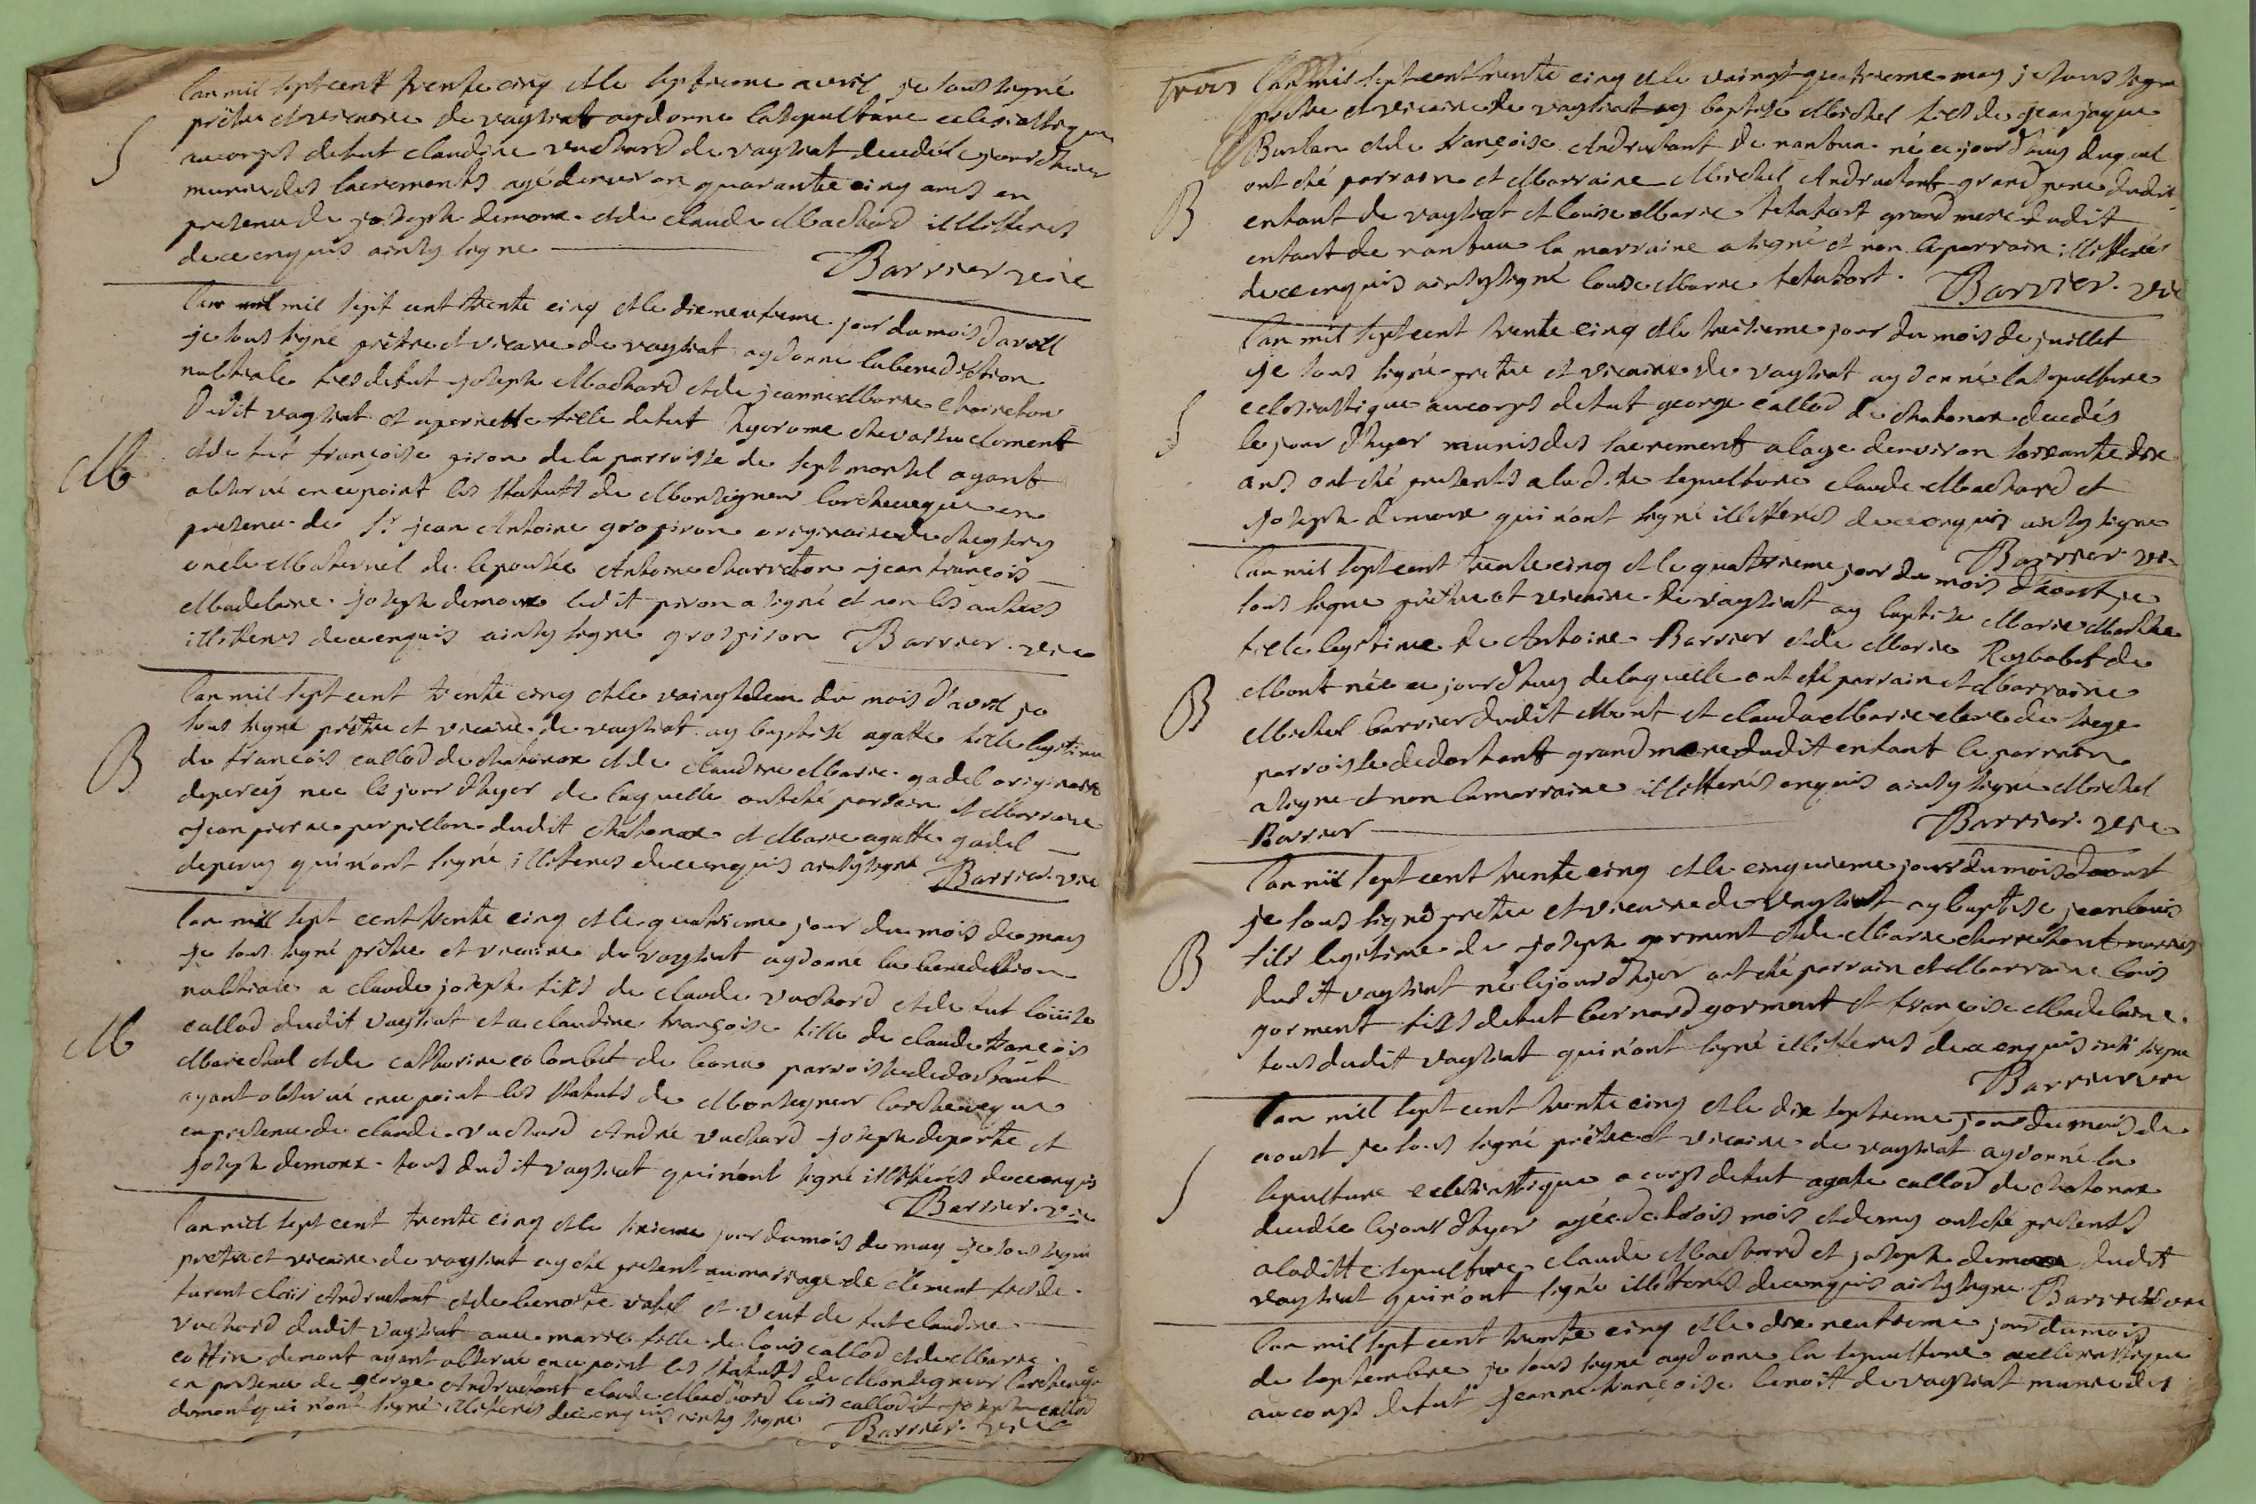 L'an mil sept cent trente cinq et le septieme avril je sous signé
S
prêtre et vicaire de vaysiat ay donne la sepulture eclesiastique
au corps de fut claudine vuchard de vaysiat decedée le jour d'hier
munie des sacrements agé d'environ quarante cinq ans en
presence de joseph demore et de claude Machard illitterés
de ce enquis ainsy signe
Barrier vice
L'an mil sept cent trente cinq et le dixneufieme jour du mois d'avril
je sous signé prêtre et vicaire de vaysiat ay donné la benediction
nubtiale fils de fut joseph Machard et de jeanne Marie
dudit vaysiat et a pernette fille de fut hyerome
M
et de feé françoise giron de la parroisse de septmonsel ayant
observé en ce point les statuts de Monseigneur l'archeveque en
presence de Sr jean Antoine grospiron originaire de
oncle Maternel de l'epousée Antoine Charreton jean françois
Madelaine joseph demore ledit piron a signé et non les autres
illitterés de ce enquis ainsy signe grospiron Barrier vice
L'an mil sept cent trente cinq et le vaingtdeux du mois d'avril je
sous signé prêtre et vicaire de vaysiat ay baptisé agatte fille legitime
B
de francois callod de chatonax et de claudine Marie gadel originaire
depercy née le jour d'hyer de laquelle ont été parrain et Marraine
jean pierre perpillon dudit chatonax et Marie agatte gadel
depercy qui n'ont signé illiterés de ce enquis ainsy signe Barrier vice
L'an mil sept cent trente cinq et le quatrieme jour du mois de may
je sous signé prêtre et vicaire de vaysiat ay donné la benediction
nubtiale a claude joseph fils de claude vuchard et de fut louise
callod dudit vaysiat et a claudine françoise fille de claude francois
M
Marechal et de catherine colombet de parroisse de dortant
ayant observé en ce point les statuts de Monseigneur l'archeveque
en presence de claude vuchard André vuchard joseph deporte et
joseph demore tous dudit vaysiat qui n'ont signé illitterés de ce enquis
Barrier vice
L'an mil sept cent trente cinq et le sixieme jour du mois de may je sous signé
pretre et vicaire de vaysiat ay eté present au mariage de clement fils de
Andructant et de benoite et veuf de fut claudine
vuchard dudit vaysiat avec marie fille de louis callod et de Marie
cottin demont ayant observé en ce point les statuts de Monseigneur l'archeveque
en presence de george Andructant claude Machard louis callod et joseph callod
demont qui n'ont signé illiterés de ce enquis ainsy signe Barrier vice
trois L'an mil sept cent trente cinq et le vaingt quatrieme may je sous signe
prêtre et vicaire de vaysiat ay baptisé Michel fils de jean jaque
Burlan et de françoise Andructant de nantua né ce jourd'huy duquel
ont eté parrain et Marraine Michel Andructant grand pere dudit
B
enfant de vaysiat et louise Marie tetafort grand mere dudit
enfant de nantua la marraine a signé et non le parrain illitteré
de ce enquis ainsy signé louise Marie tetafort. Barrier vic
L'an mil sept cent trente cinq et le treisieme jour du mois de juillet
je sous signé pretre et vicaire de vaysiat ay donné la sepulture
eclesiastique au corps de fut george callod de chatonax decedés
S
le jour d'hyer munis des sacrement a l'age d'environ soixante dix
ans ont eté presents a lad. te sepulture claude Machard et
joseph demore qui n'ont signé illitterés de ce enquis ainsy signe
Barrier vic
L'an mil sept cent trente cinq et le quatrieme jour du mois d'aoust je
sous signe prêtre et vicaire de vaysiat ay baptisé Marie Marthe
fille legitime de Antoine Barrier et de Marie Reybabet de
B
Mont née ce jourd'huy de laquelle ont eté parrain et Marraine
Michel barrier dudit Mont et claude Marie clere de
parroisse de dortant grand mere dudit enfant le parrain
a signe et non la marraine illitterés enquis ainsy signé Michel
Barrier
Barrier vice
L'an mil sept cent trente cinq et le cinquieme jour du mois d'aoust
je sous signé pretre et vicaire de vaysiat ay baptisé jean louis
B
fils legitime de joseph gorment et de Marie mariés
dudit vaysiat né le jour d'hyer ont eté parrain et Marraine louis
gorment fils de fut bernard gorment et francoise Madelaine
tous dudit vaysiat qui n'ont signé illitterés de ce enquis signe
Barrier vice
L'an mil sept cent trente cinq et le dix septieme jour du mois de
aoust je sous signé prêtre et vicaire de vaysiat ay donné la
S
sepulture eclesiastique a corps de fut agate callod de chatonax
decedée le jour d'hyer agée de trois mois et demy ont eté presents
a laditte sepulture claude Machard et joseph demore dudit
vaysiat qui n'ont signé illitterés de ce enquis ainsy signe Barrier vice
L'an mil sept cent trente cinq et le dix neufieme jour du mois
de septembre je sous signe ay donne la sepulture
au corps de fut jeanne françoise benoitt de vaysiat munie des